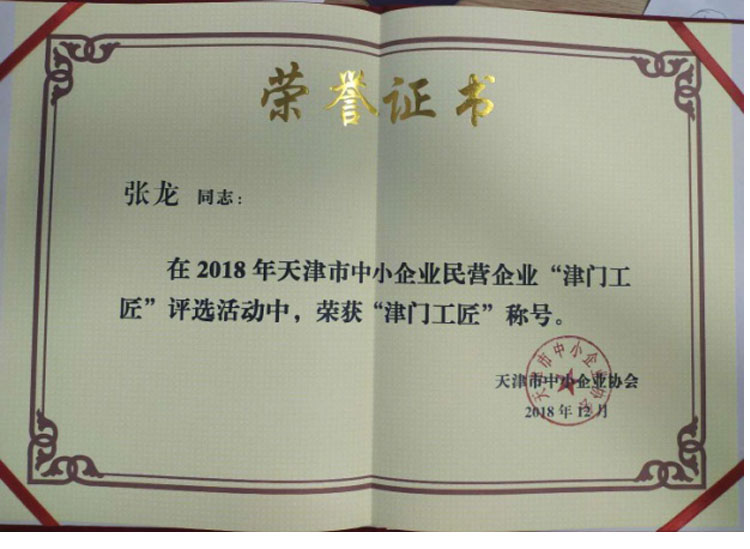 荣誉证书
张龙 同志：
在2018年天津市中小企业民营企业“津门工
匠”评选活动中，荣获“津门工匠”称号。
天津市中小企业协会
天津市中小企业协会
2018年12月